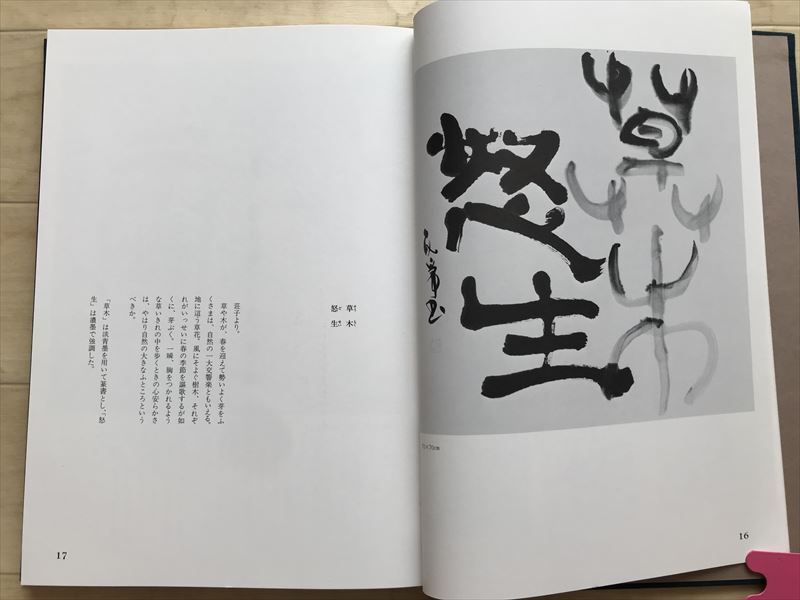 草木
怒生
75×70cm
16
草木
怒生
荘子より。
草や木が、春を迎えて勢いよく芽をふ
くさまは、自然の一大交響楽ともいえる。
地に這う草花。風にそよぐ樹木、それぞ
れがいっせいに春の季節を謳歌するが如
くに、芽ぶく。一瞬、胸をつかれるよう
な草いきれの中を歩くときの心安らかさ
は、やはり自然の大きなふところという
べきか。
「草木」は淡青墨を用いて篆書とし、「怒
生」は濃墨で強調した。
17